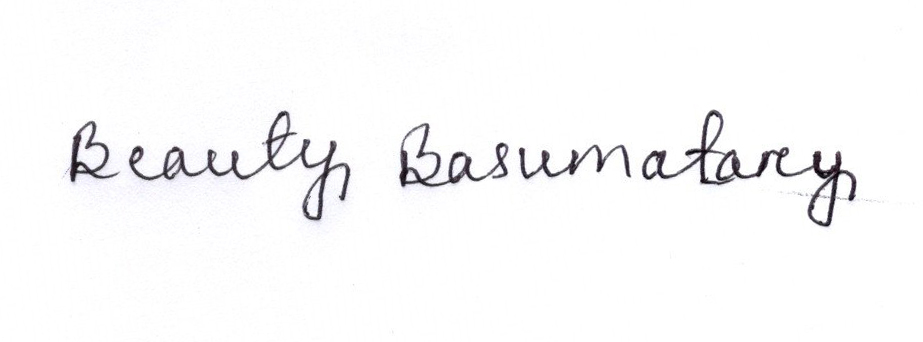 Beauty Basumatary